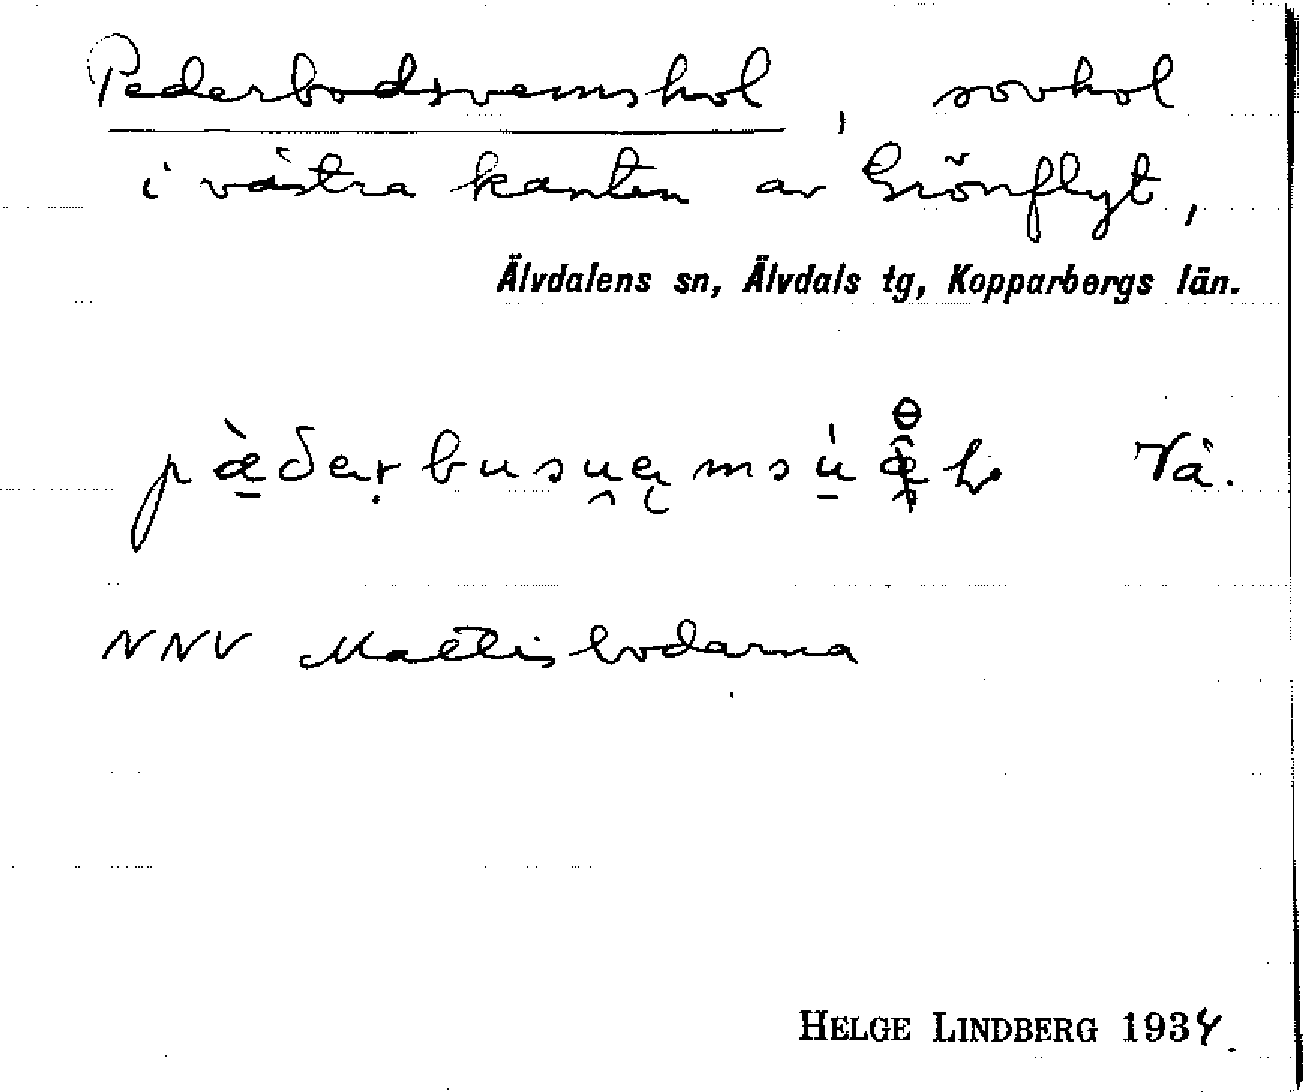 Pederbodsvemshol, sovhol
i västra kanten av Grönflyt,
Älvdalens sn, Älvdals tg, Kopparbergs län.
Vå.
NNV Mattisbodarna
HELGE LINDBERG 1934